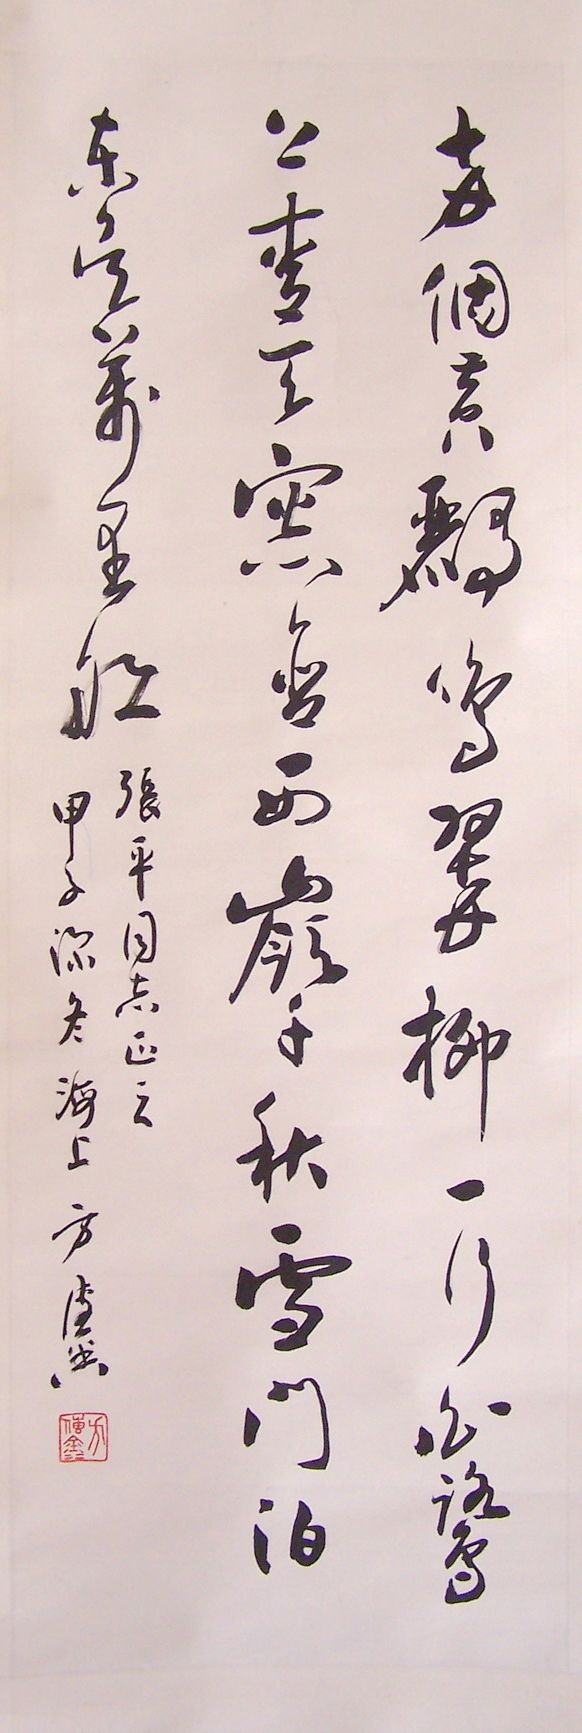 兩個黃鸝鳴翠柳一行白鷺
上青天窻含西嶺千秋雪門泊
東吳萬里船
張平同志正之
甲子深冬海上方傳鑫
方傳鑫